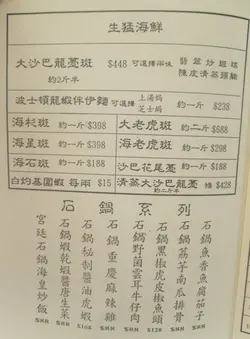 生猛海鮮
大沙巴龍躉斑 $448 可選擇兩味 翡翠炒斑球
約2斤半 陳皮清蒸頭腩
波士頓龍蝦伴伊麵 可選擇 上湯焗 約一斤 $238
芝士焗
海杉斑 約一斤 $398 大老虎斑 約二斤 $688
海星斑 約一斤 $398 海老虎斑 約一斤 $298
海石斑 約一斤 $188 沙巴花尾躉 約一斤 $188
白灼基圍蝦 每兩 $15 清蒸大沙巴龍躉 條 $428
石鍋系列
石鍋魚香魚腐茄子
石鍋荔芋南瓜排骨
石鍋黑椒虎皮椒魚頭 $128
石鍋野菌雲耳牛仔肉
石鍋重慶麻辣雞
石鍋秘制醬油虎蝦 $168
石鍋蝦乾蝦醬唐生菜
宮廷石鍋海皇炒飯